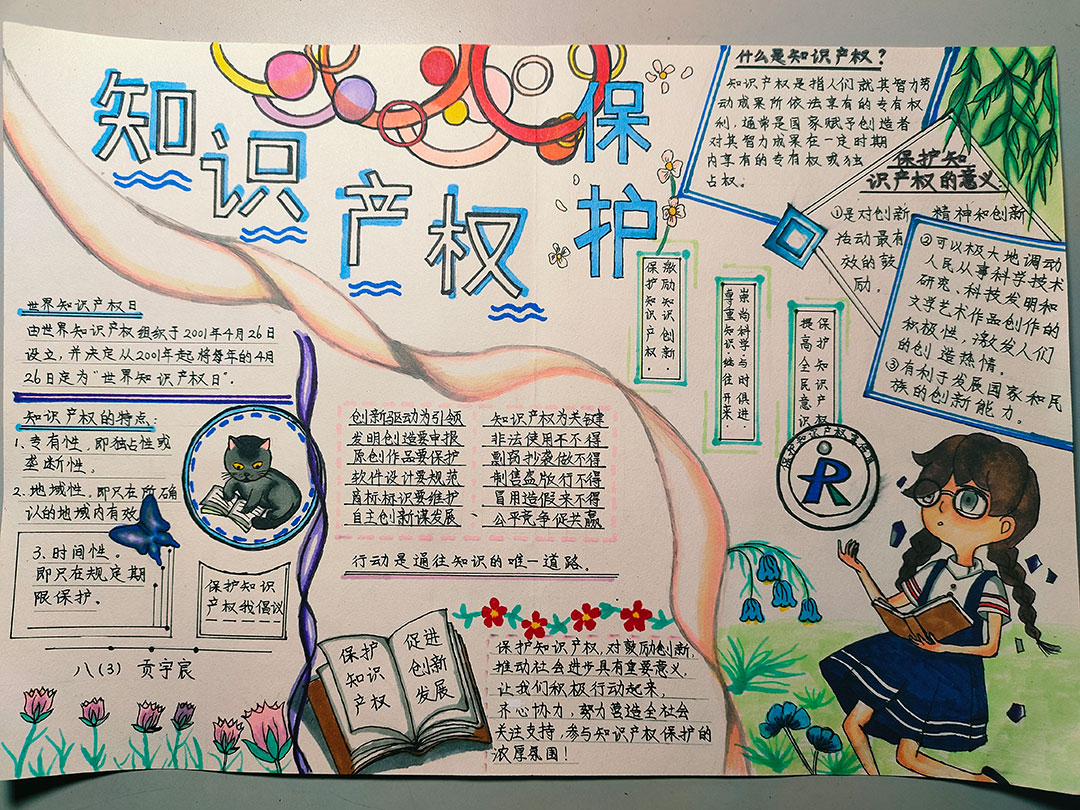 知识产权
保护
什么是知识产权？
知识产权是指人们就其智力劳
动成果所依法享有的专有权
利，通常是国家赋予创造者
对其智力成果在一定时期
内享有的专有权或独
占权。
保护知
识产权的意义：
①是对创新 精神和创新
活动最有
效的鼓
励。
②可以极大地调动
人民从事科学技术
研究、科技发明和
文学艺术作品创作的
积极性，激发人们
的创造热情。
③有利于发展国家和民
族的创新能力。
激励知识创新，
保护知识产权。
崇尚科学·与时俱进
尊重知识·继往开来
保护知识产权
提高全民意识
世界知识产权日
由世界知识产权组织于2001年4月26日
设立，并决定从2001年起将每年的4月
26日定为“世界知识产权日”。
知识产权的特点：
1、专有性，即独占性或
垄断性。
2、地域性，即只在所确
认的地域内有效
3、时间性。
即只在规定期
限保护。
保护知识
产权我倡议
八（3） 贡宇宸
创新驱动为引领 知识产权为关键
发明创造要申报 非法使用不不得
原创作品要保护 剽窃抄袭做不得
软件设计要规范 制售盗版行不得
商标标识要维护 冒用造假来不得
自主创新谋发展、公平竞争促共赢
行动是通往知识的唯一道路。
保护
知识
产权
促进
创新
发展
保护知识产权，对鼓励创新，
推动社会进步具有重要意义，
让我们积极行动起来，
齐心协力，努力营造全社会
关注支持，参与知识产权保护的
浓厚氛围！
保护知识产权
R